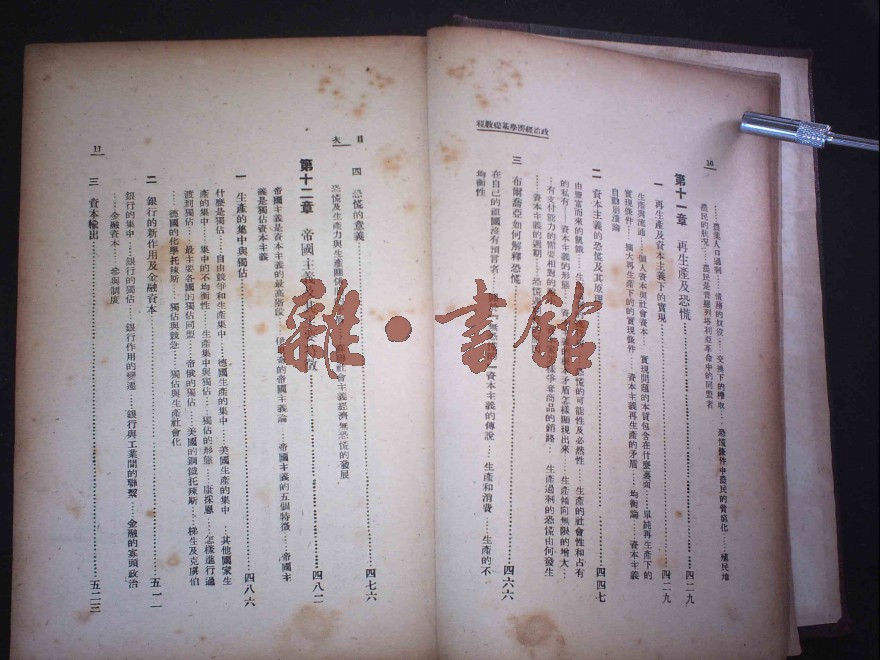 政治經濟學基礎教程
16
……農業人口過剩……債務的奴役……交換下的榨取……恐慌條件中農民的貧窮化……殖民地
農民的狀况……農民是普羅列塔利亞革命中的同盟者
第十一章 再生產及恐慌……四二九
一 再生產及資本主義下的實現……四二九
生產與流通……個人資本與社會資本……實現問題的本質包含在什麼裏面……單純再生產下的
實現條件……擴大再生產下的實現條件……資本主義再生產的矛盾……均衡論……資本主義
自動崩潰論
二 資本主義的恐慌及其原理……四四七
由豐富而來的飢饉……生 恐慌的可能性及必然性……生產的社會性和占有
的私有——資本主義的形態 矛盾怎樣顯現出來……生產傾向無限的增大……
…有支付能力的需要相對的 爭奪商品的銷路……生產過剩的恐慌由何發生
……資本主義的週期……恐慌
三 布爾喬亞如何解釋恐慌……四六六
在自己的祖國沒有預言者 無 資本主義的傳說……生產和消費……生產的不
均衡性
目 次
17
四 恐慌的意義……四七六
恐慌及生產力與生產關係 社會主義經濟無恐慌的發展
第十二章 帝國主義及 ……四八二
帝國主義是資本主義的最高階段 的帝國主義論……帝國主義的五個特徵……帝國主
義是獨佔資本主義
一 生產的集中與獨佔……四八六
什麼是獨佔……自由競爭和生產集中……德國生產的集中……美國生產的集中……其他國家生
產的集中……集中的不均衡性……生產集中與獨佔……獨佔的形態……康采恩……怎樣進行過
渡到獨佔……最主要各國的獨佔同盟……帝俄的獨佔……美國的鋼鐵托辣斯……梯生及克虜伯
……德國的化學托辣斯……獨佔與競爭……獨佔與生產社會化
二 銀行的新作用及金融資本……五一一
銀行的集中……銀行的獨佔……銀行作用的變遷……銀行與工業間的聯繫……金融的寡頭政治
……金融資本……參與制度
三 資本輸出……五二三
雜·書館